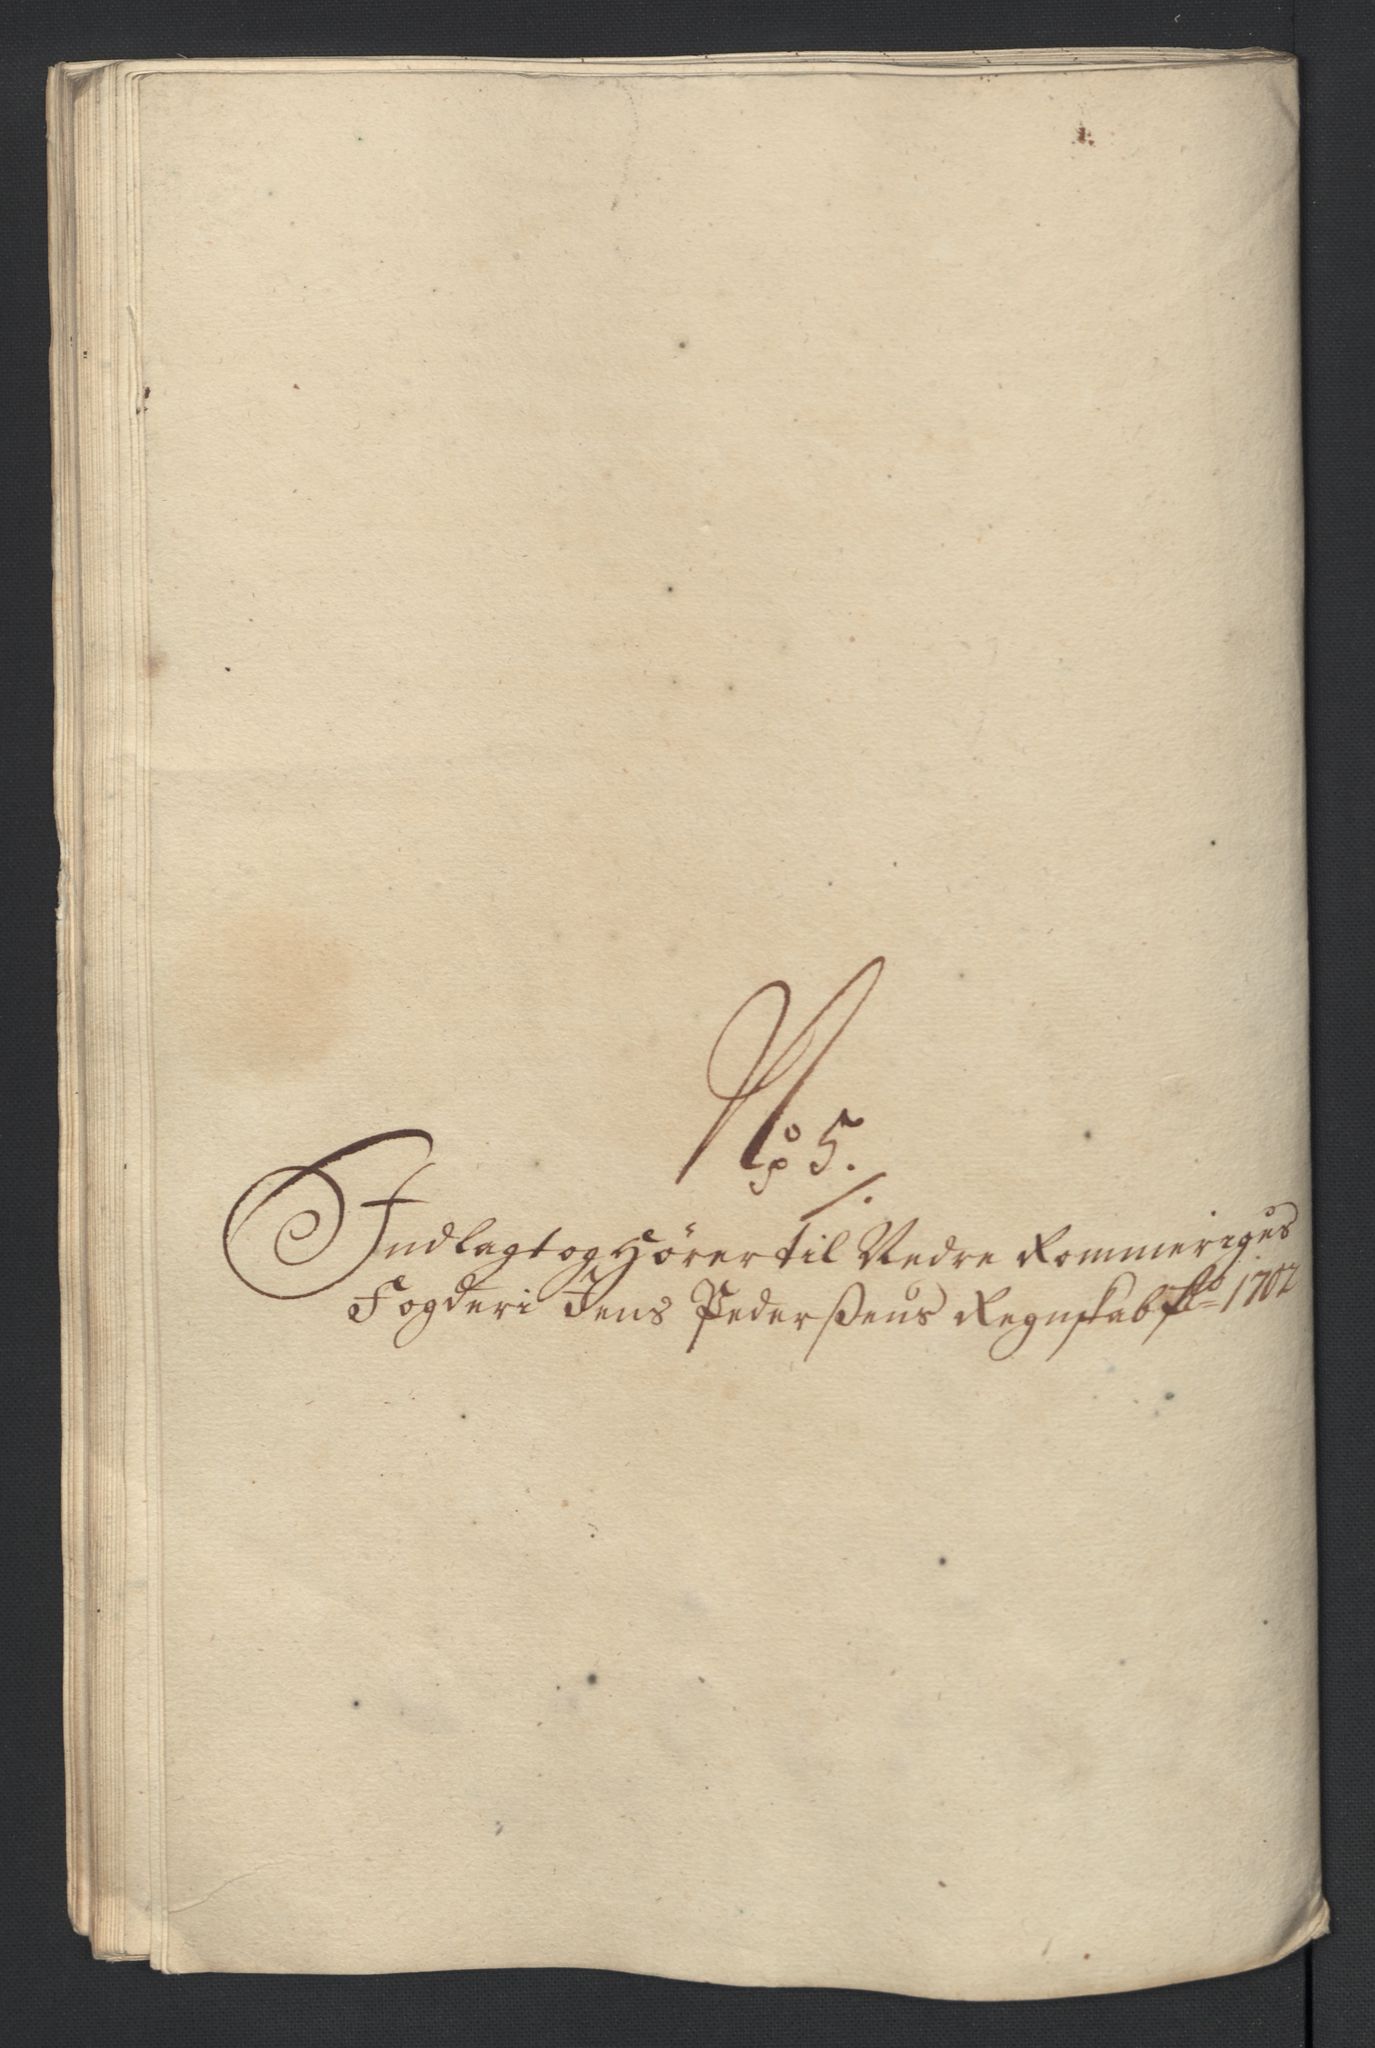 No 5.
Indlagt og Hører til Nedre Rommeriges
Fogderi Jens Pederßens Regnskab Ao 1702